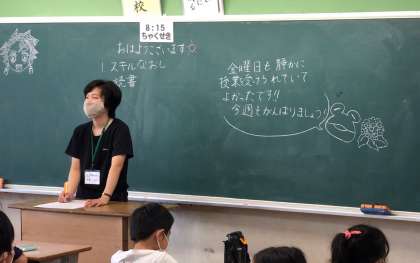 校
8:15
ちゃくせき
おはようございます
1 スキルなおし
読書
金曜日も静かに
授業を受けられていて
よかったです!!
今週もがんばりましょう